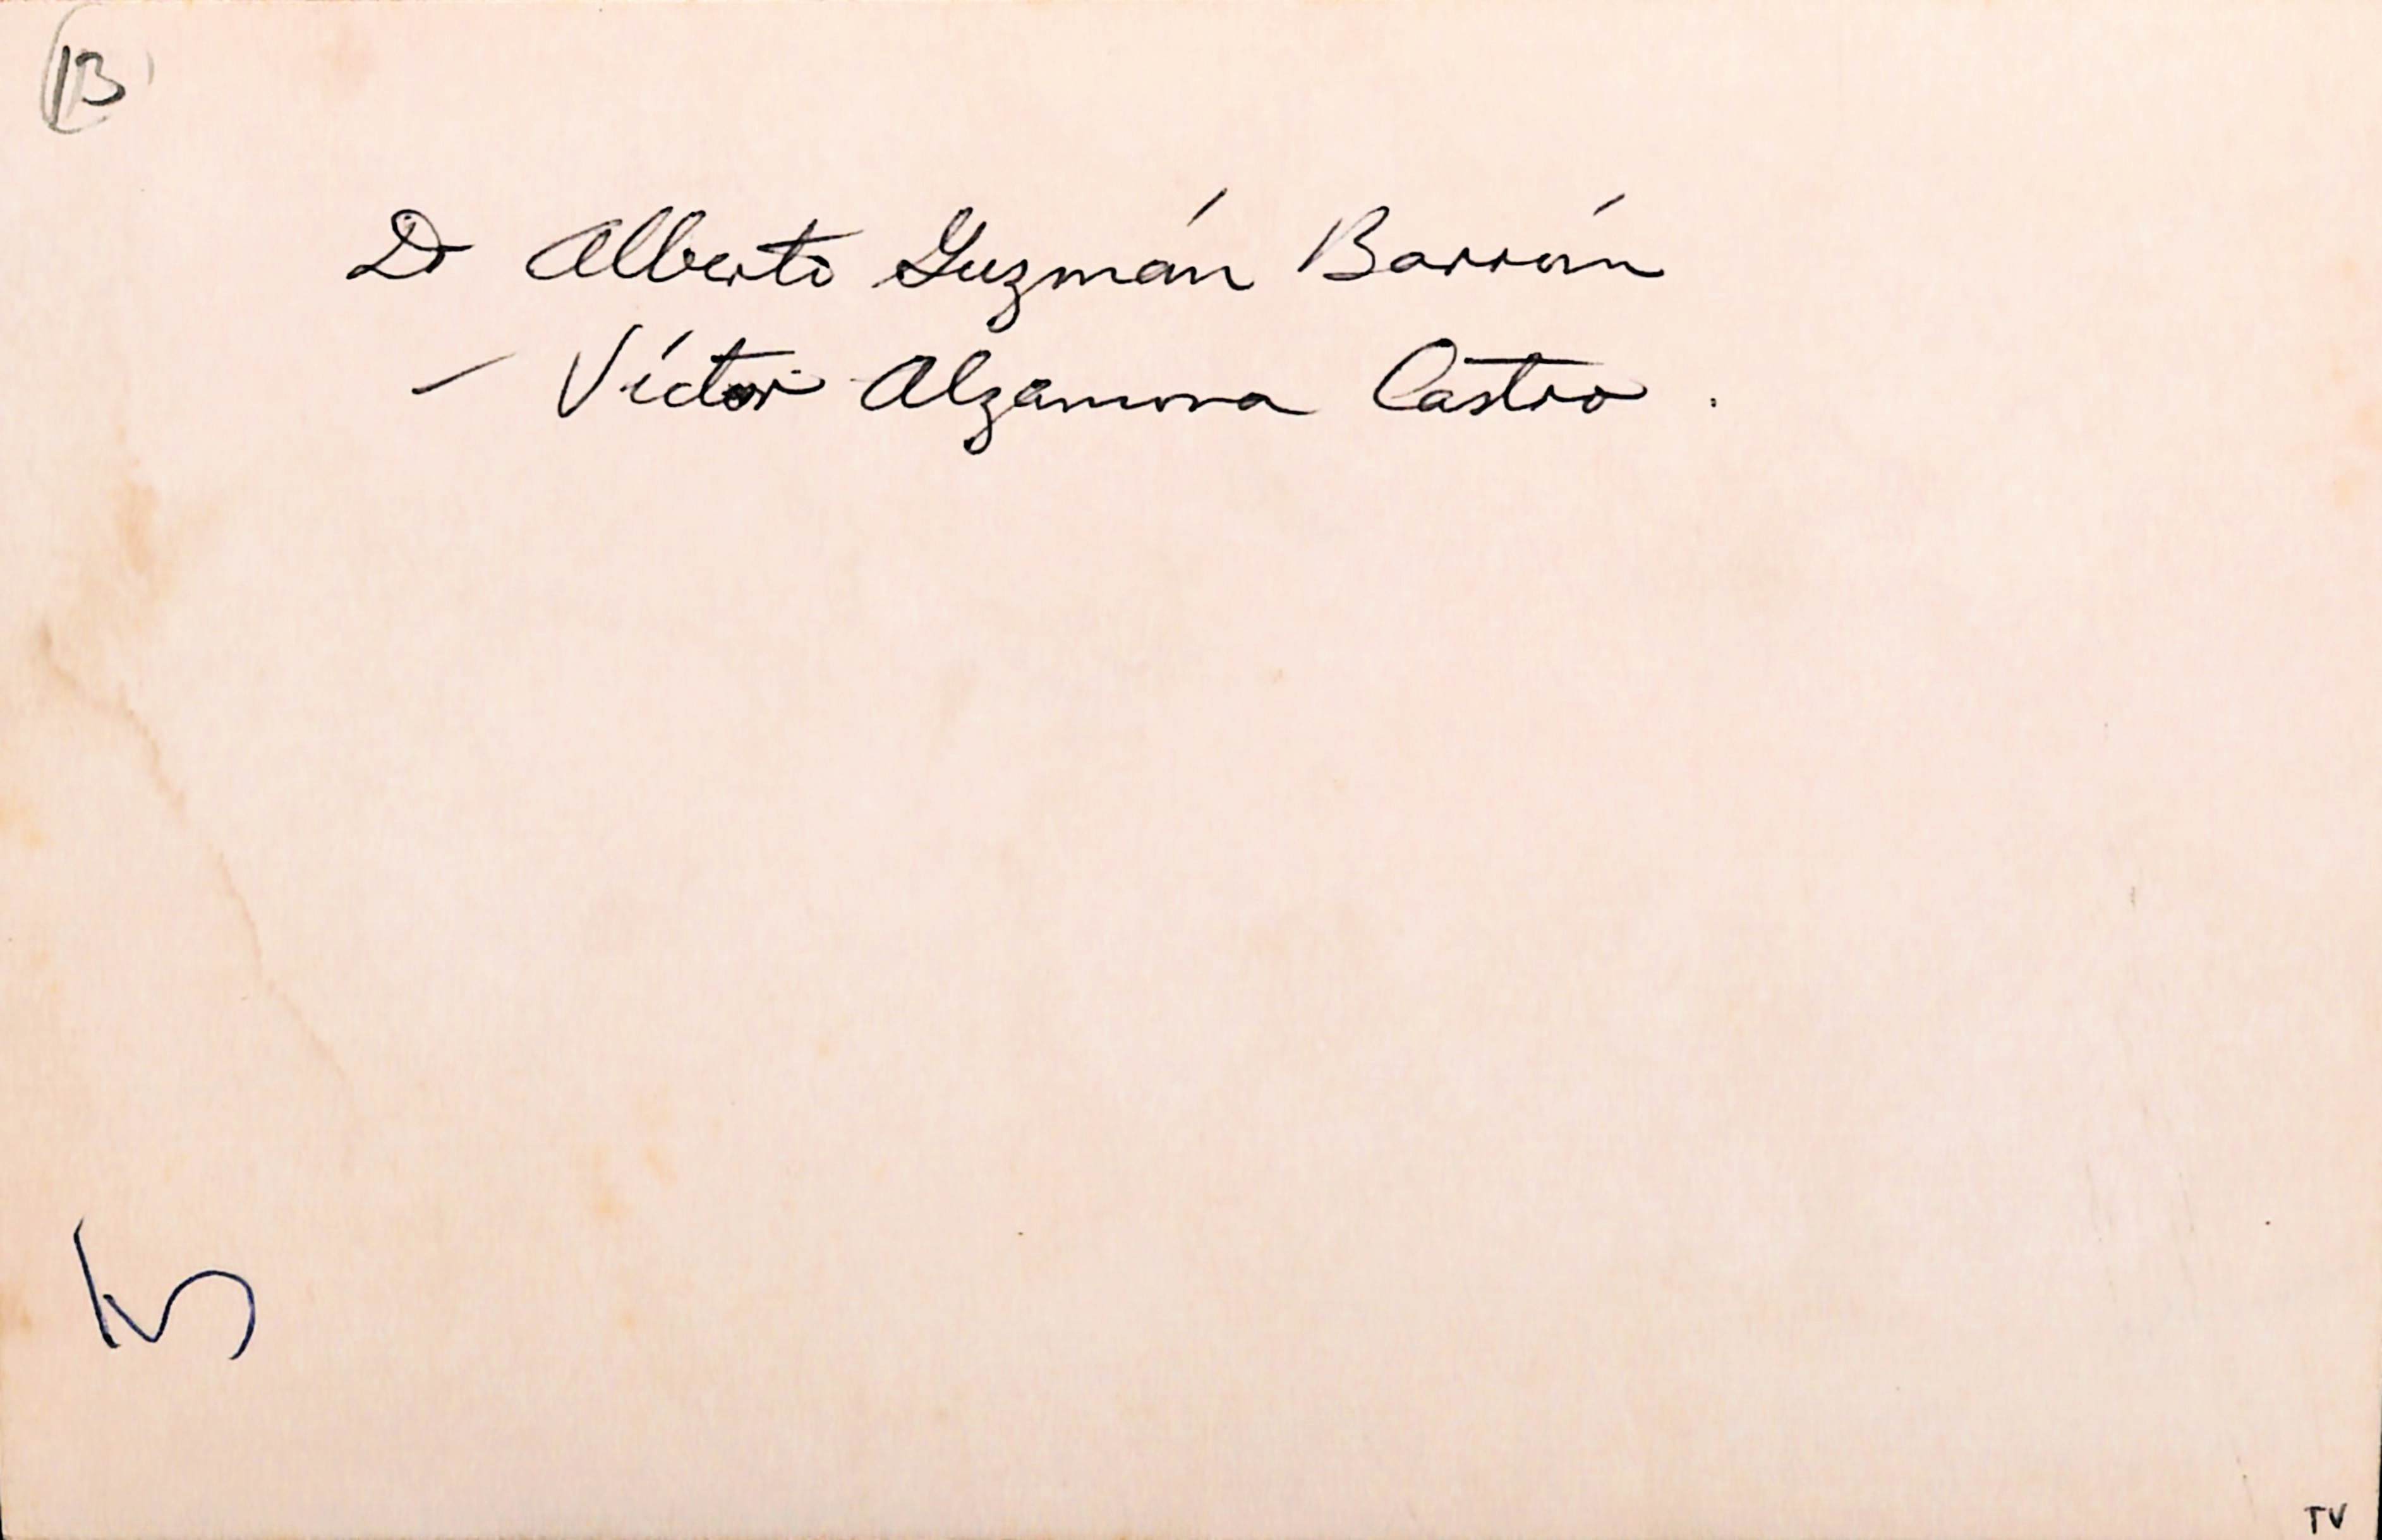 13
Dr Alberto Guzmán Barrón
- Víctor Alzamora Castro.
TV